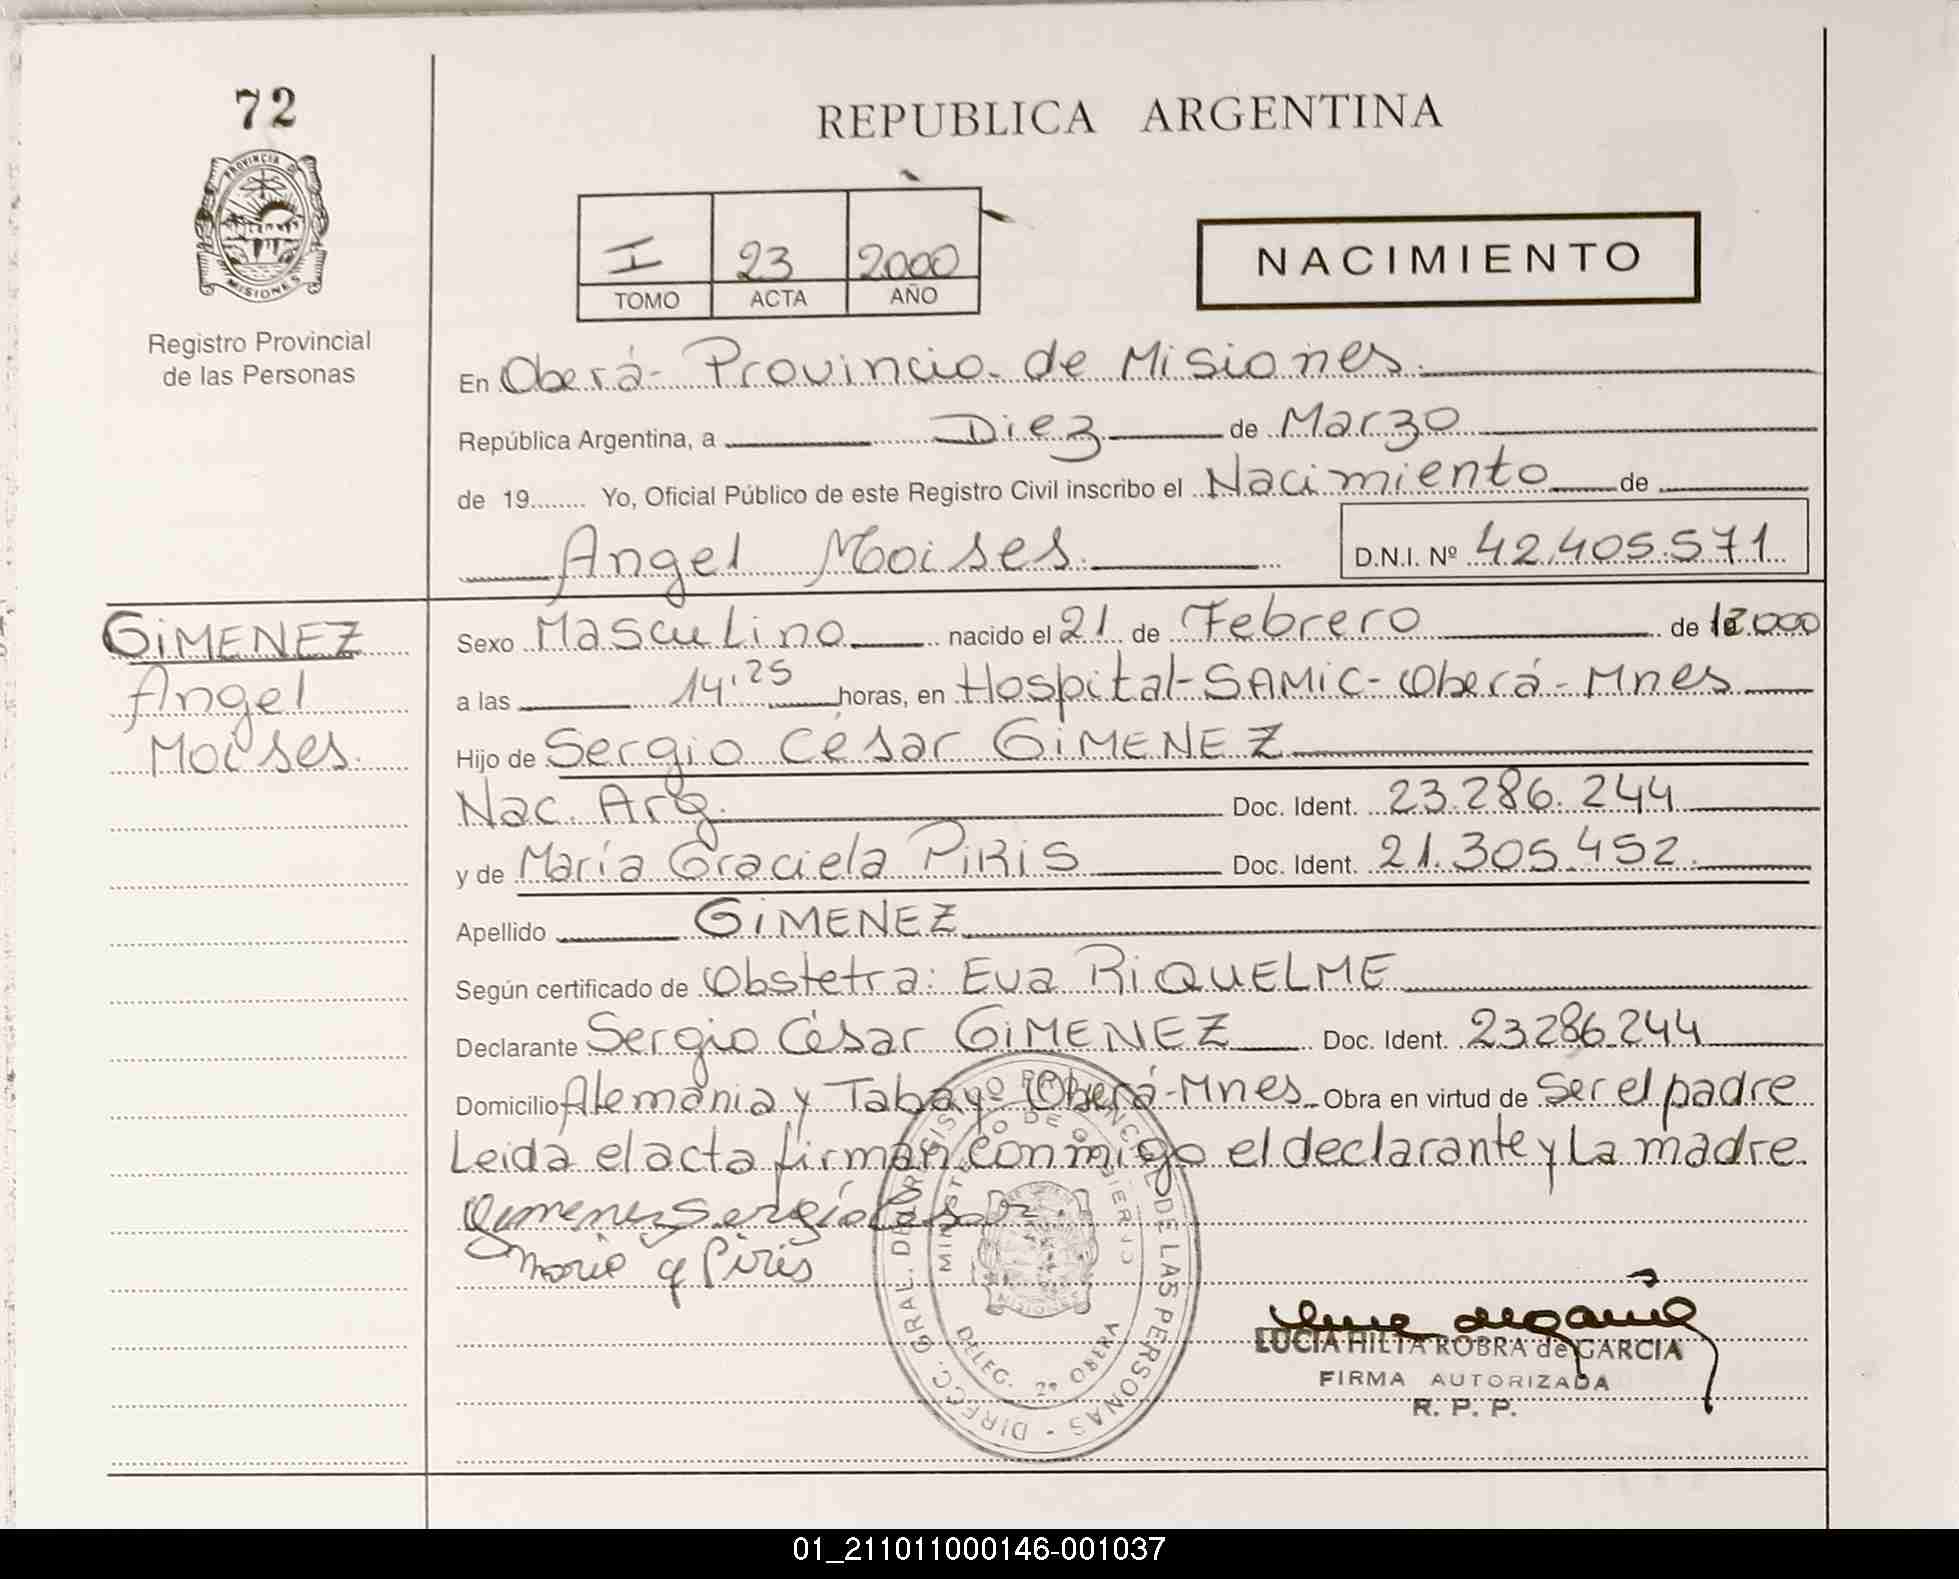 72
REPUBLICA ARGENTINA
PROVINCIA DE
MISIONES
Registro Provincial
de las Personas
I 23 2000
TOMO ACTA AÑO
NACIMIENTO
En Oberá - Provincia de Misiones
República Argentina, a Diez de Marzo
de 19........ Yo, Oficial Público de este Registro Civil inscribo el Nacimiento de
Angel Moises. D.N.I. Nº 42.405.571
GIMENEZ
Angel
Moises.
Sexo Masculino nacido el 21 de Febrero de 2000
a las 14,25 horas, en Hospital-SAMIC-Oberá-Mnes
Hijo de Sergio César GIMENEZ
Nac. Arg. Doc. Ident. 23.286.244
y de María Graciela PIRIS Doc. Ident. 21.305.452.
Apellido GIMENEZ
Según certificado de Obstetra: Eva RIQUELME
Declarante Sergio César GIMENEZ Doc. Ident. 23286.244
Domicilio Alemania y Tabay- Oberá-Mnes Obra en virtud de Ser el padre
Leida el acta firman conmigo el declarante y la madre.
Gimenez Sergio Cesar
Maria G Piris
DIRECC. GRAL. DEL REGISTRO PROVINCIAL DE LAS PERSONAS
MINISTERIO DE GOBIERNO
MISIONES
DELEG. 2ª OBERA
LUCIA HILTA ROBRA de GARCIA
FIRMA AUTORIZADA
R. P. P.
01_211011000146-001037